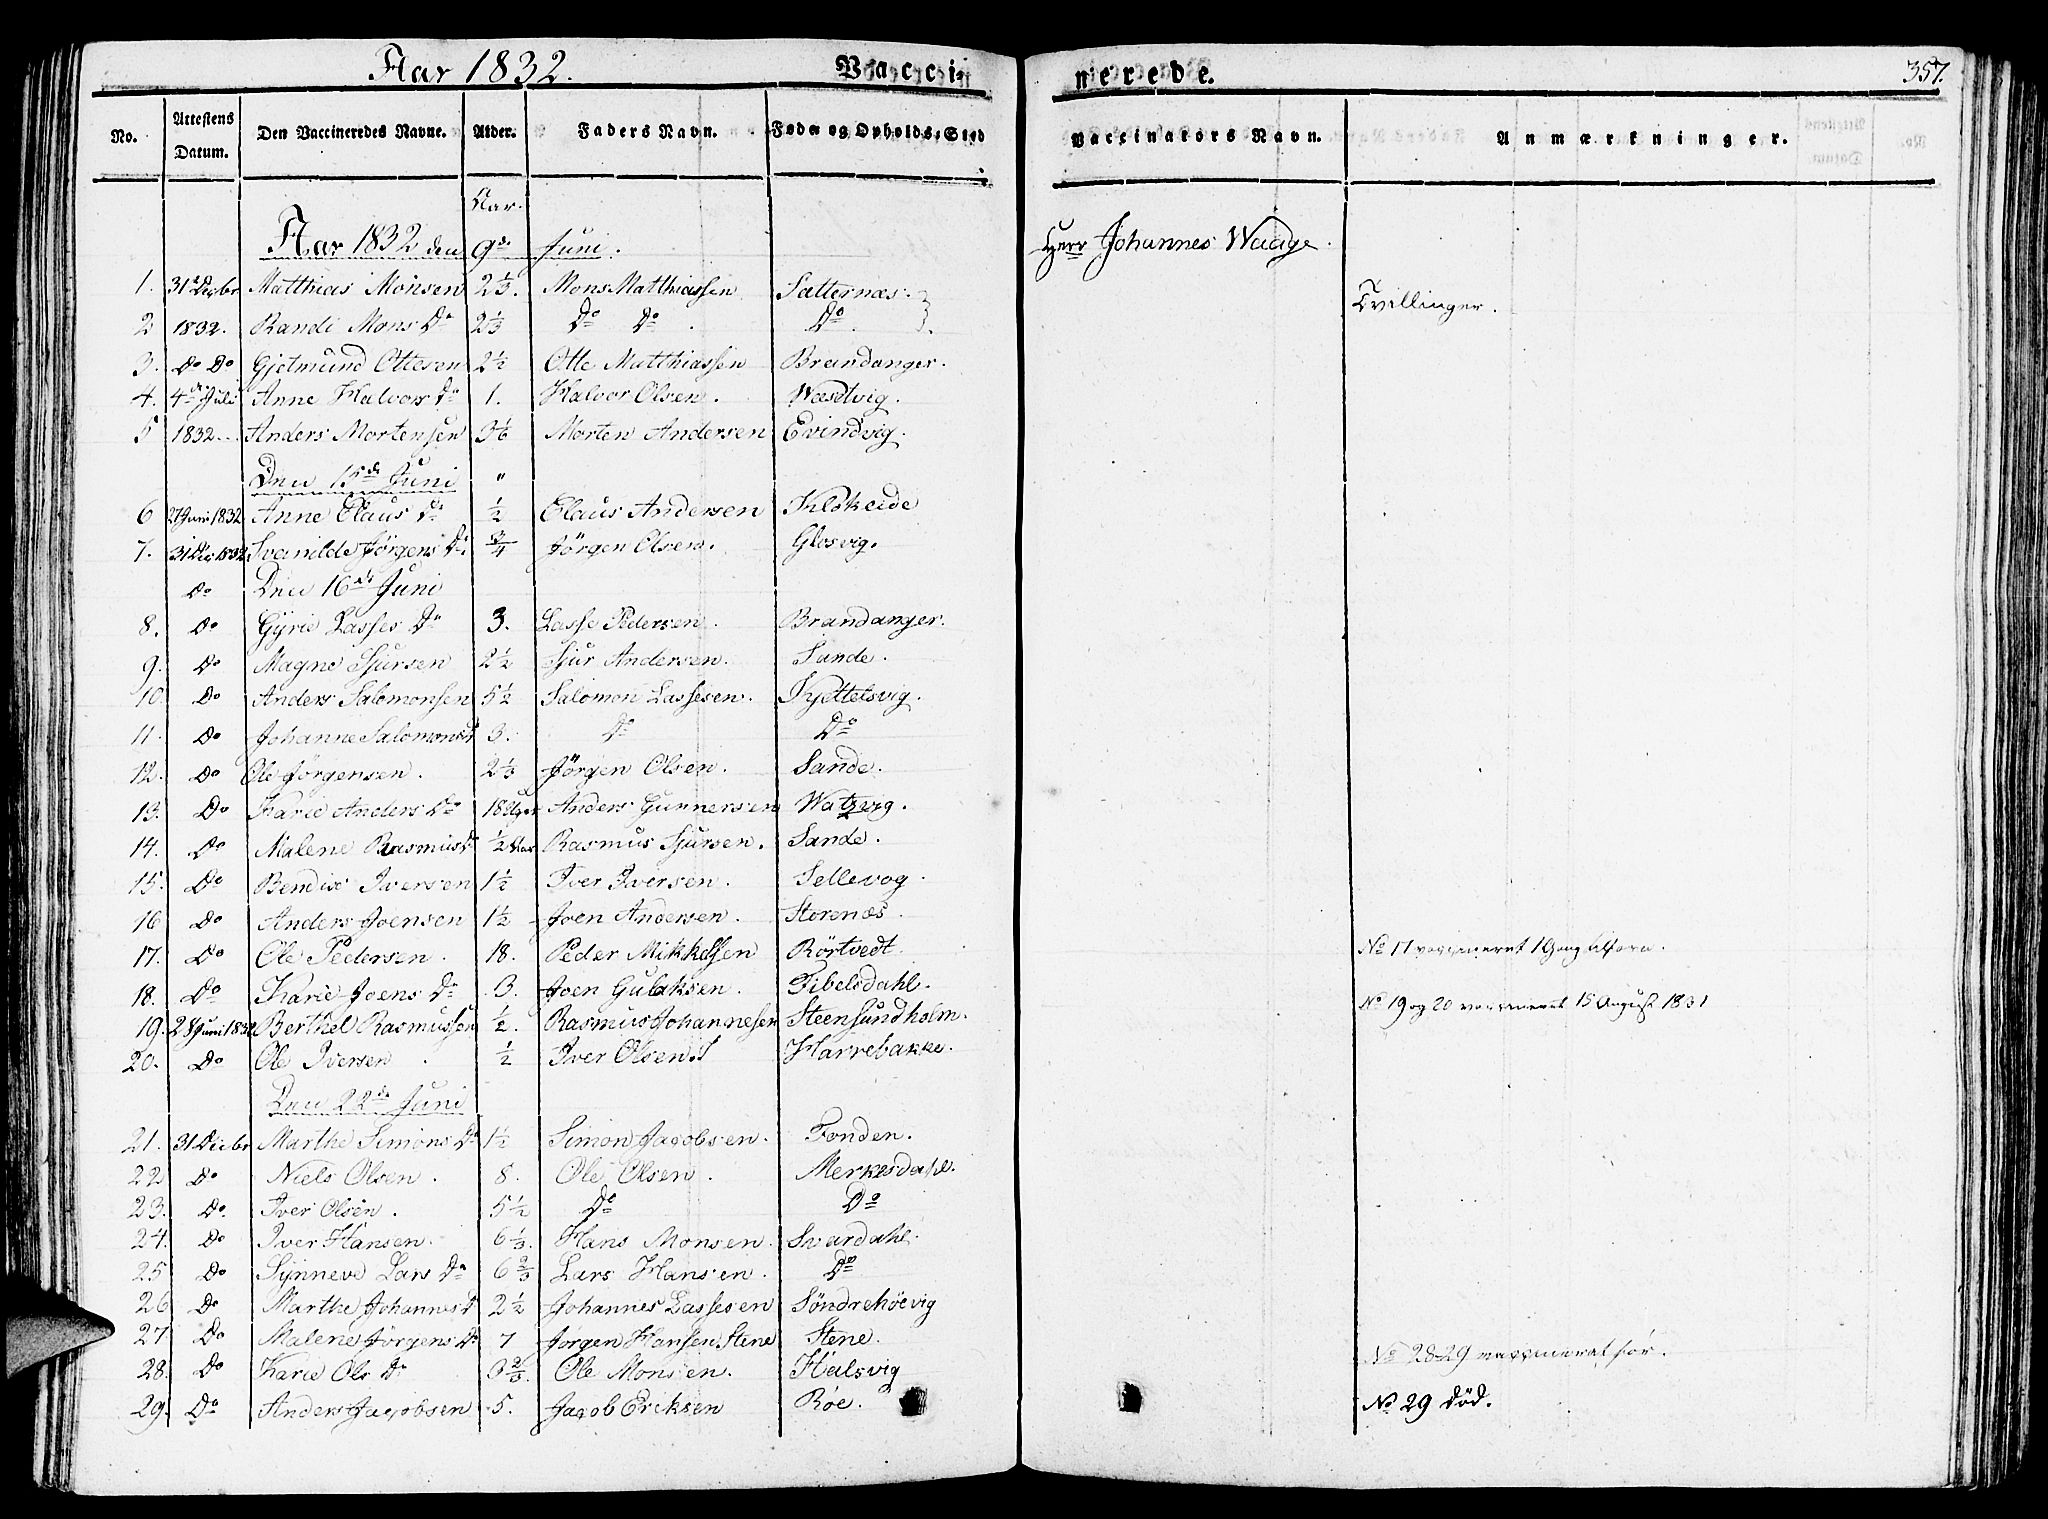 Aar 1832. Vaccinerede. 357.
No. Attestens Datum. Den Vaccineredes Navne. Alder. Faders Navn. Føde og Opholds-Sted Vaccinators Navn. Anmærkninger.
Aar.
Aar 1832 den 9de Juni. Herr Johannes Waage.
1. 31 Decbr Matthias Monsen 2 1/3. Mons Matthiassen Satternæs. Tvillinger.
2 1832. Randi Mons Dr 2 1/3 Do Do. Do.
3. Do Do Gjetmund Ottesen 2 1/2 Otte Matthiassen Brandanger.
4. 4de Juli Anne Halvors Dr 1. Halvor Olsen. Wæstvig.
5 1832 Anders Mortensen 3 1/6 Morten Andersen Evindvig.
Den 15de Juni "
6 27 Juni 1832 Anne Claus Dr 1/2 Claus Andersen
7. 31 Dec 1832 Svanilde Jörgens Dr 3/4 Jörgen Olsen. Glosvig.
Do Den 16de Juni
8. Do Gÿrie Lasses Dr 3. Lasse Pedersen. Brandanger.
9. Do Magne Sjursen 2 1/2 Sjur Andersen. Sande.
10. Do Anders Salomonsen 5 1/2 Salomon Lassesen. Kjettelsvig.
11. Do Johanne Salomons D 3. Do Do
12. Do Ole Jörgensen. 2 1/3 Jörgen Olsen. Sande.
13. Do Karie Anders Dr 18 Uger Anders Gunnersen Watzvig.
14. Do Malene Rasmus D 1/2 Aar Rasmus Sjursen. Sande.
15. Do Bendix Iversen 1 1/2 Iver Iversen. Sellevog.
16 Do Anders Joensen 1 1/2 Joen Andersen. Storenæs.
17. Do Ole Pedersen. 18. Peder Mikkelsen Rörtvedt. No 17 vaccineret 1 Gang tilforn.
18. Do Karie Joens Dr 3. Joen Gulaksen. Tibelsdahl.
19. 28 Juni 1832 Berthel Rasmussen 1/2. Rasmus Johannesen Steensundholm. No 19 og 20 vaccineret 15 August 1831
20. Do Ole Iversen. 1/2 Iver Olsen. Harrebakke.
Den 22de Juni
21. 31 Decbr Marthe Simons Dr 1 1/2 Simon Jacobsen. Fonden.
22 Do Niels Olsen. 8. Ole Olsen. Merkesdahl.
23. Do Iver Olsen. 5 1/2 Do Do
24. Do Iver Hansen. 6 1/3. Hans Monsen. Svardahl.
25 Do Synneve Lars Dr 6 2/3 Lars Hansen. Do
26 Do Marthe Johannes D 2 1/2 Johannes Lassesen Söndrehöevig
27. Do Malene Jörgens Dr 7 Jörgen Hansen Stene Stene.
28. Do Karie Ols Dr 3 2/3. Ole Monsen. Halsvig No 28-29 vaccineret før.
29. Do Anders Jacobsen 5. Jacob Eriksen Röe. No 29 död.